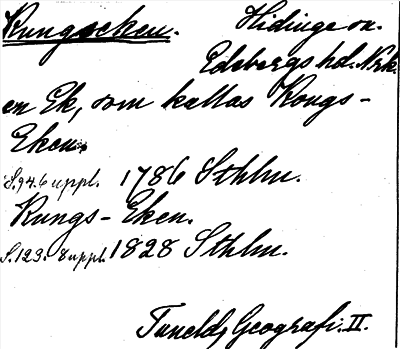 Kungseken. Hidinge sn.
Edsbergs hd. Nrk.
en Ek, som kallas Kongs-
Eken.
S. 94. 6 uppl. 1786 Sthlm.
Kungs-Eken.
S. 123. 8 uppl. 1828 Sthlm.
Tunelds Geografi. II.